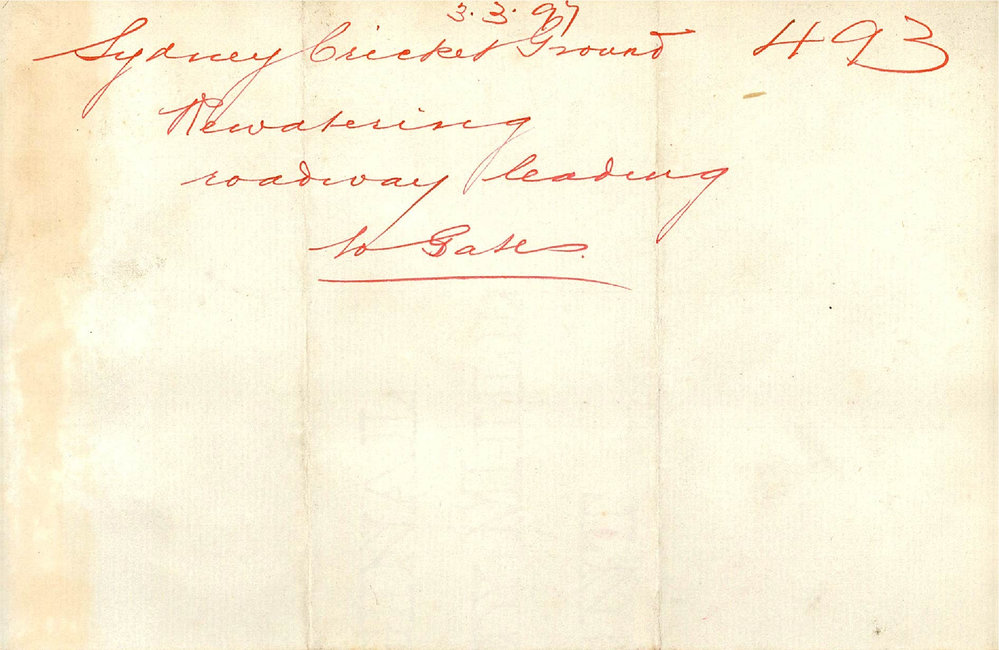 3.3.97
Sydney Cricket Ground 493
Rewatering
roadway leading
to Gates.